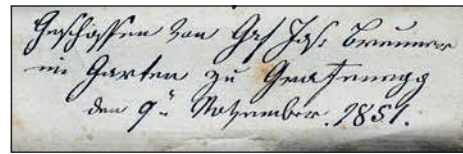 Geschossen von Grf Jos: Breunner
im Garten zu Grafenegg
den 9ᵗ November. 1851.